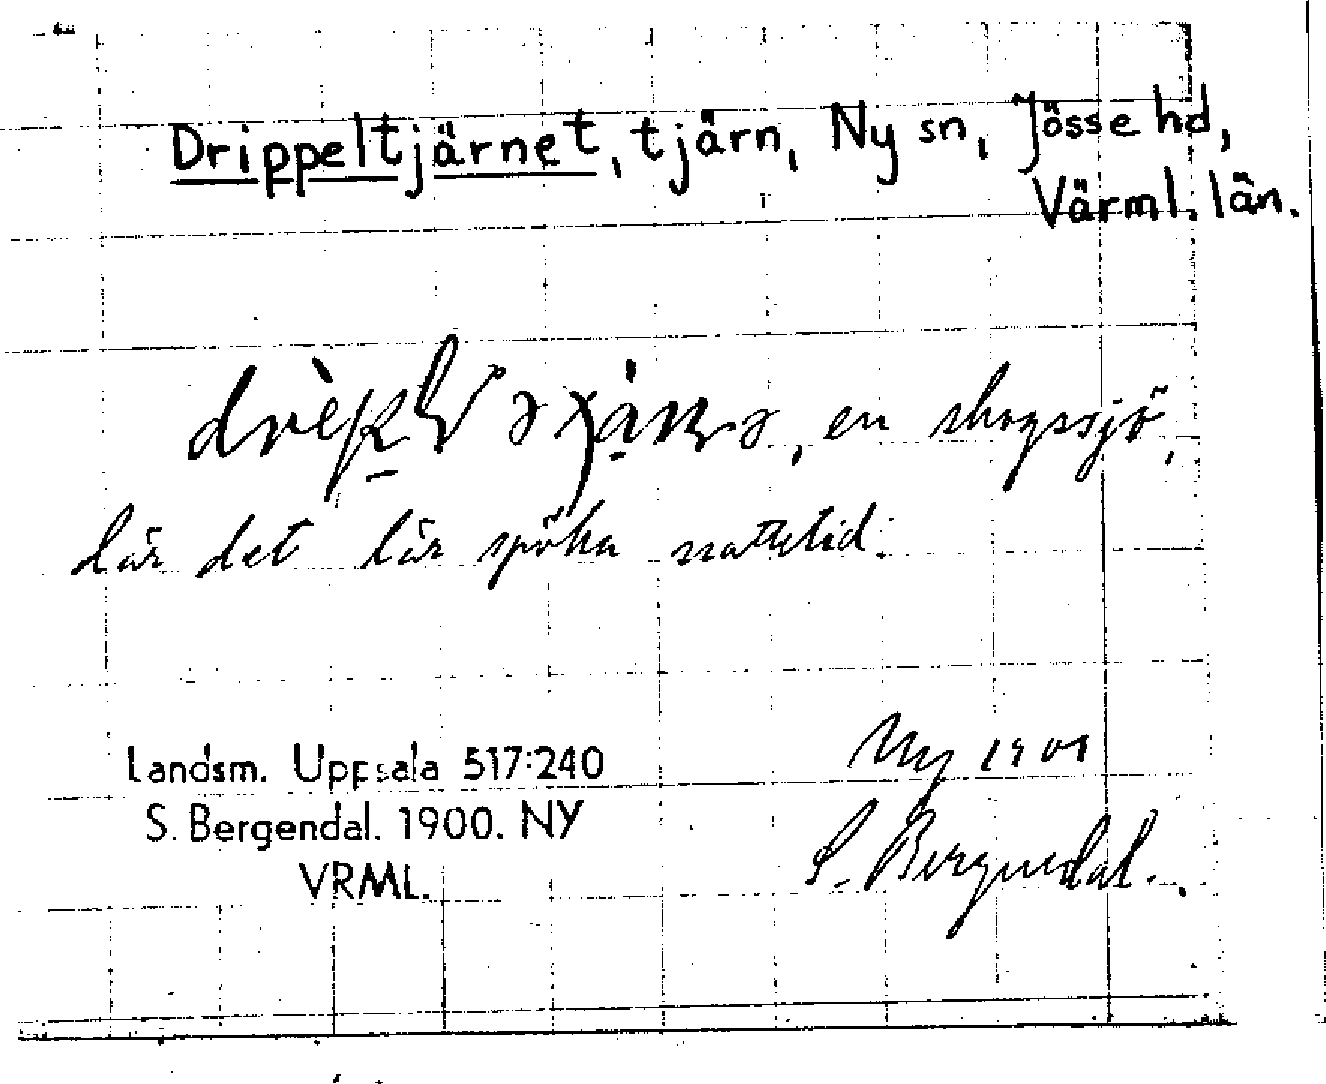 Drippeltjärnet, tjärn, Ny sn, Jösse hd,
Värml. län.
en skogssjö,
där det lär spöka nattetid.
Ny 1901
S. Bergendal.
Landsm. Uppsala 517:240
S. Bergendal. 1900. NY
VRML.